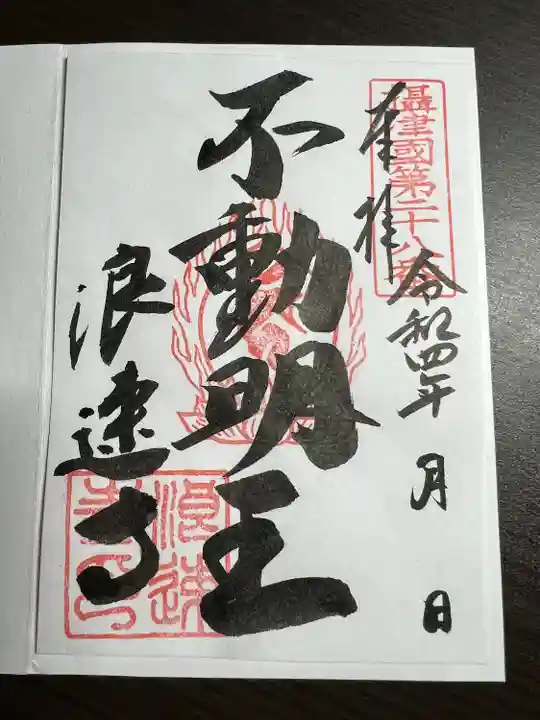 攝津國第二十八番
奉拝
令和四年 月 日
不動明王
浪速寺
浪速寺印